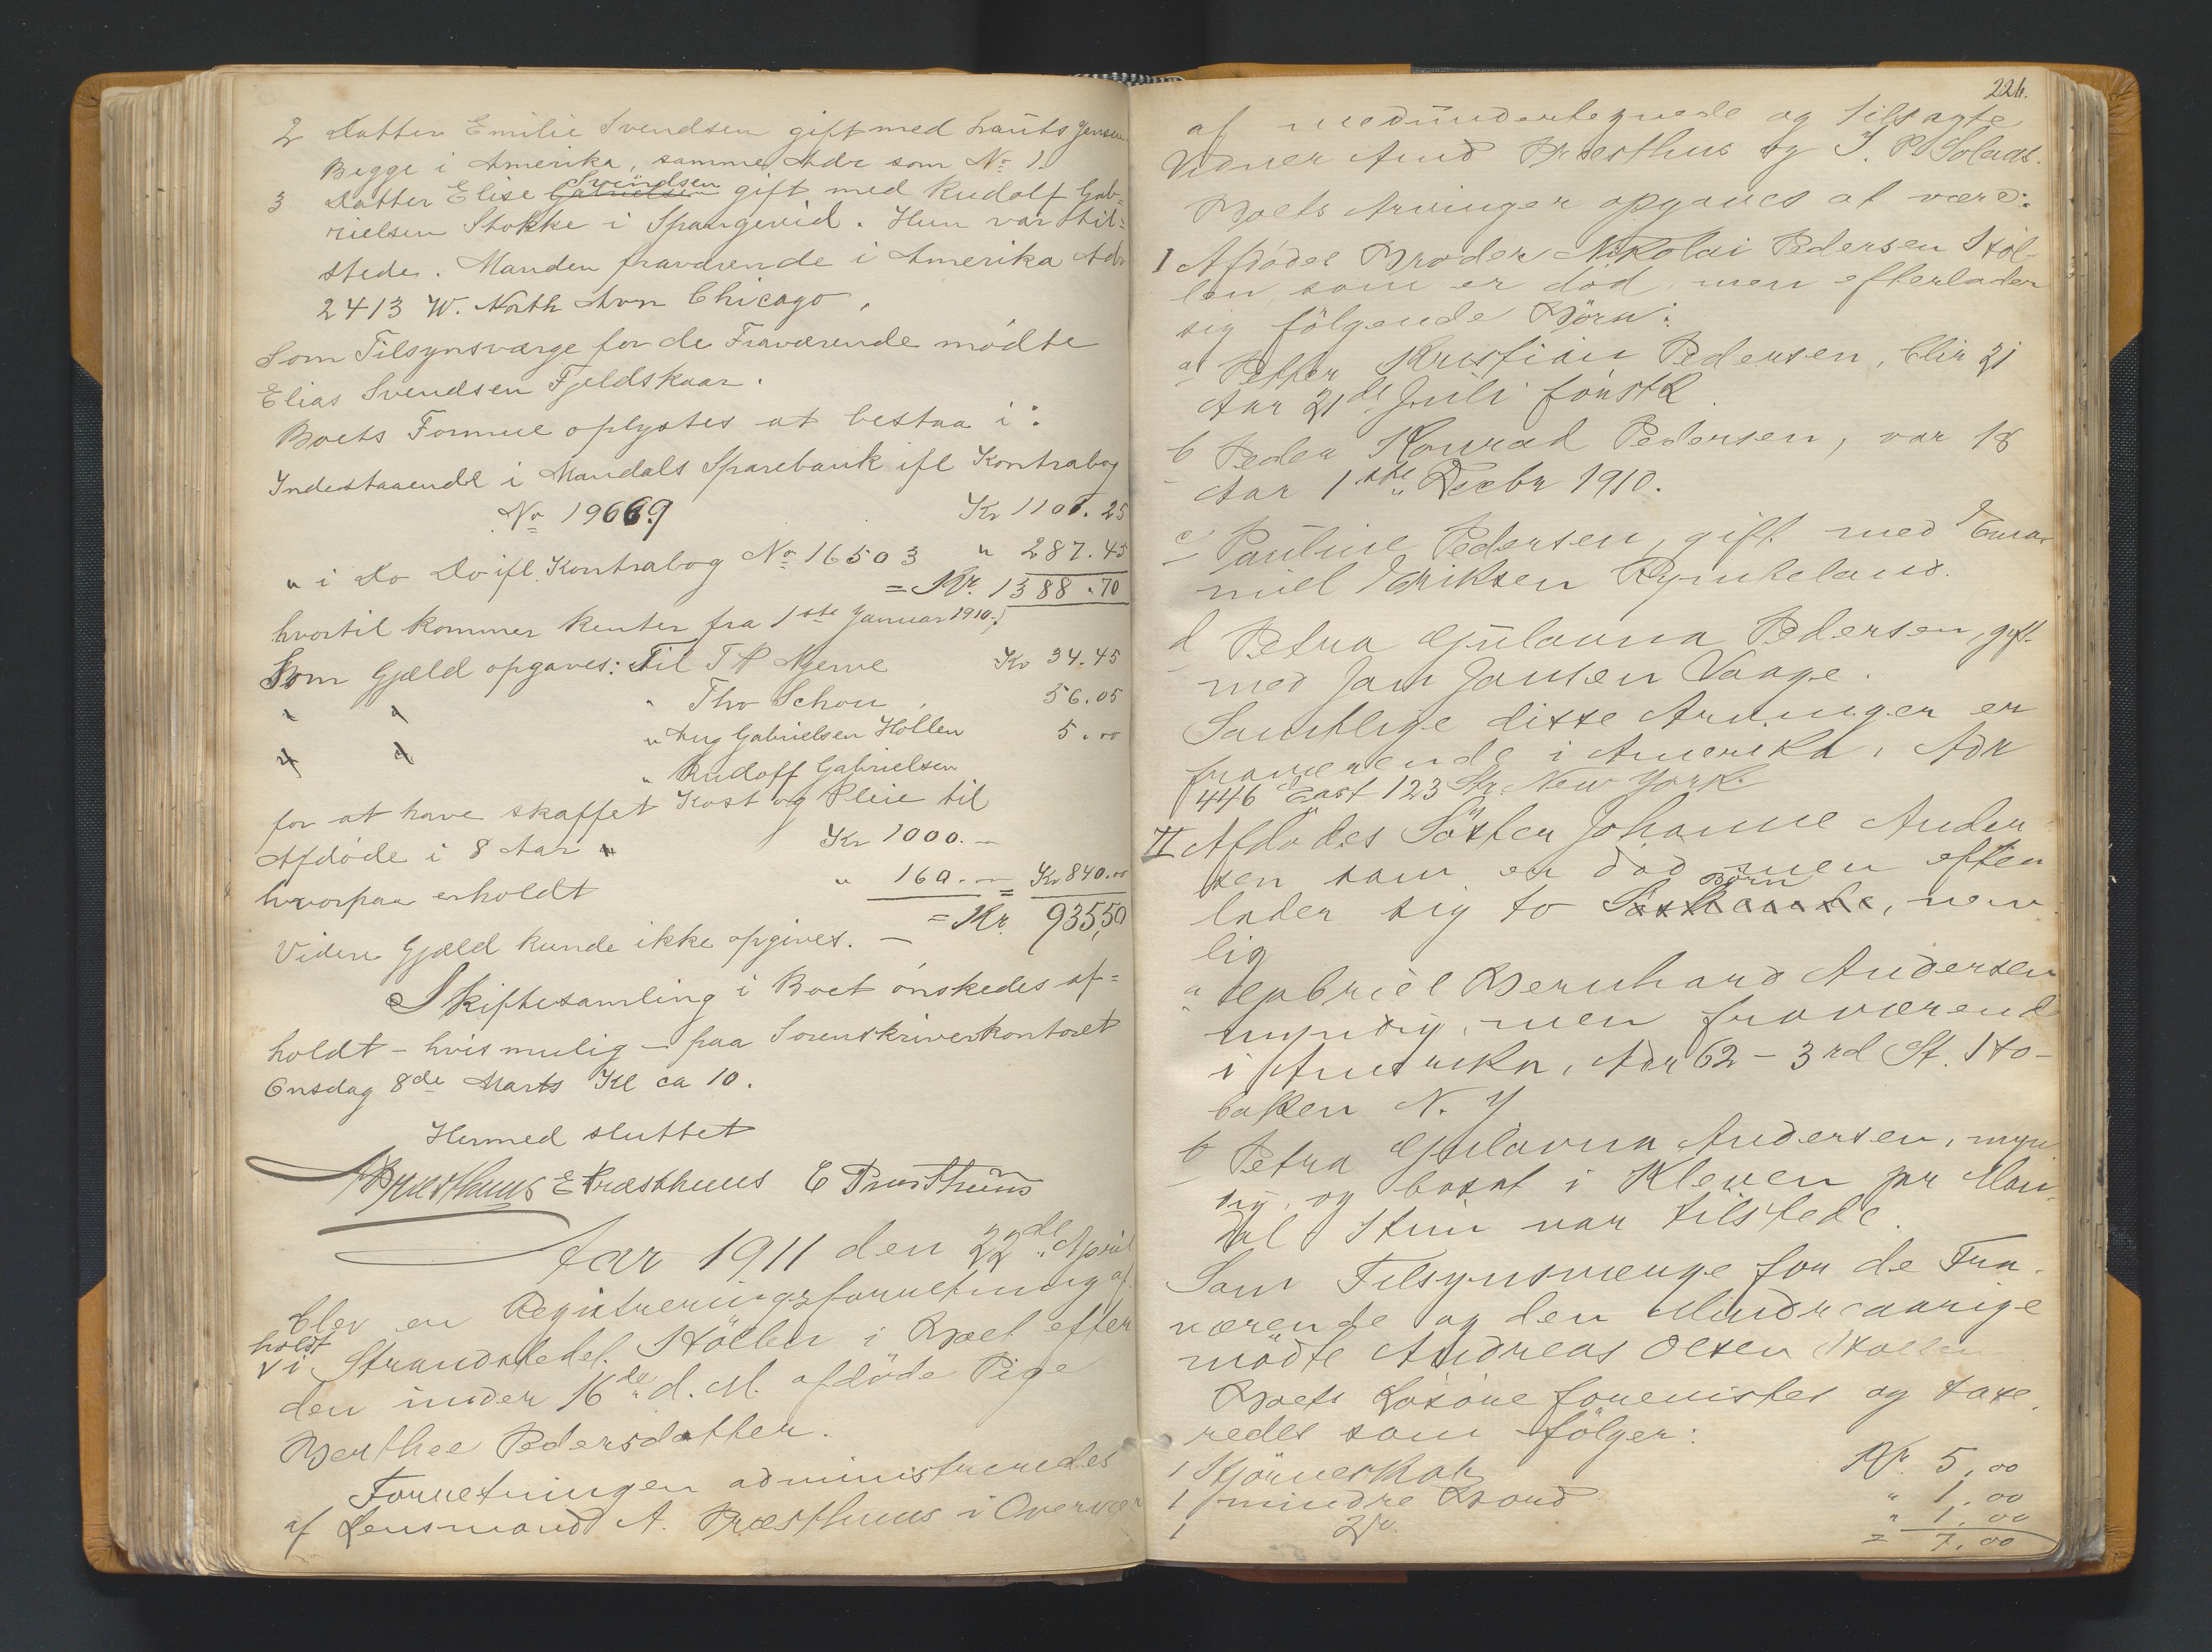 2 Datter Emilie Svendsen gift med Lauits Jensen
Begge i Amerika, samme Adr som No 1.
3 Datter Elise Gabrielsen Svendsen gift med Rudolf Gab-
rielsen Stokke i Spangereid. Hun var til-
stede. Manden fraværende i Amerika Adr
2413 W. North Avn Chicago.
Som Tilsynsværge for de Fraværende mødte
Elias Svendsen Fjeldskaar.
Boets Formue oplystes at bestaa i:
Indestaaende i Mandals Sparebank ifl Kontrabog
No 19669 Kr 1101.25
" i Do Do ifl. Kontrabog No 16503 " 287.45
= Kr. 1388.70
hvortil kommer Renter fra 1ste Januar 1910.
Som Gjæld opgaves: Til T P Njerve Kr 34.45
" " " Tho Schou 56.05
" " " Aug Gabrielsen Høllen 5.00
" Rudolf Gabrielsen
for at have skaffet Kost og Pleie til
Afdøde i 8 Aar Kr 1000.-
hvorpaa erholdt " 160.00 = Kr 840.00
= Kr. 935,50
Videre Gjæld kunde ikke opgives. —
Skiftesamling i Boet ønskedes af-
holdt - hvis mulig - paa Sorenskriverkontoret
Onsdag 8de Marts Kl ca 10.
Hermed sluttet
A Præsthuus E Præsthuus E Præsthuus
Aar 1911 den 22de April
blev en Registreringsforretning af
holdt
v i Strandstedet Høllen i Boet efter
den under 16de d. M. afdøde Pige
Berthe Pedersdatter.
Forretningen administreredes
af Lensmand A. Præsthuus i Overvær
226.
af medundertegnede og tilsagte
Vidner And Præsthus og T. P. Solaas.
Boets Arvinger opgaves at være:
I Afdødes Broder Nikolai Pedersen Høl-
len, som er død, men efterlader
sig følgende Børn:
a Petter Kristian Pedersen, blir 21
Aar 21de Juli førstk
b Peder Konrad Pedersen, var 18
Aar 1ste Decbr 1910.
c Pauline Pedersen, gift med Ema-
nuel Eriksen Rynkeland.
d Petra Gulavna Pedersen, gift
med Jan Jansen Vaage.
Samtlige disse Arvinger er
fraværende i Amerika, Adr
446 East 123 Str. New York.
II Afdødes Søster Johanne Ander
sen som er død men efter
Børn
lader sig to, nem
lig
a Gabriel Bernhard Andersen
myndig, men fraværende
i Amerika, Adr 62 - 3rd St. Ho-
boken N. Y
b Petra Gulavna Andersen, myn
dig, og bosat i Kleven pr Man
dal Hun var tilstede.
Som Tilsynsværge for de Fra-
værende og den Mindreaarige
mødte Andreas Olsen Høllen
Boets Løsøre forevistes og taxe
redes som følger:
1 Hjørneskab Kr. 5.00
1 mindre Bord " 1.00
1 Do. " 1.00
= 7.00